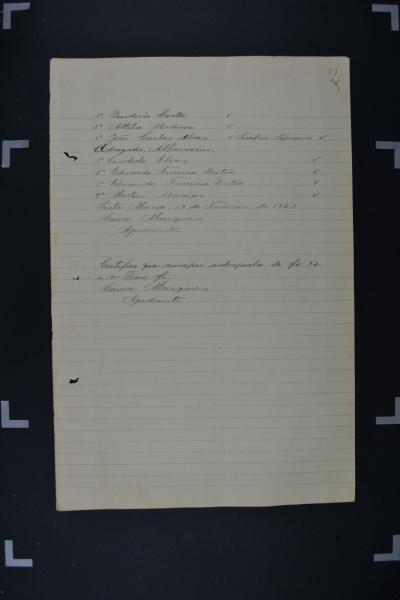 53
1º Desiderio Costa v
2º Attilio Medina v
3º João Carlos Alves v Serafim v
Advogado, Albarracim
1º Candido Elias v
2º Eduardo Ferreira Dutra v
3º Edmundo Ferreira Dutra v
4º Martins v
Santa Maria, 19 de Fevereiro de 192
Laura Marques
Ajudante
Certifico que cumpri o despacho de fs. 92
e v. Dou fé.
Laura Marques
Ajudante